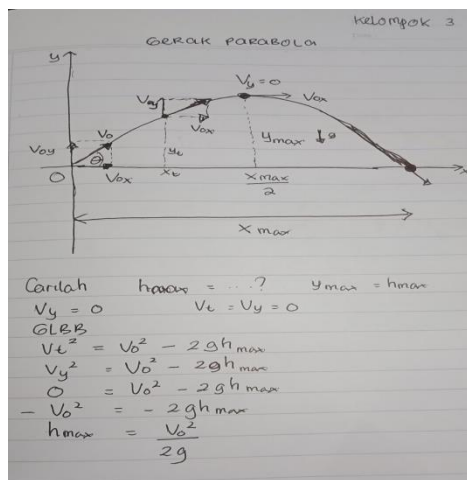 Kelompok 3
GERAK PARABOLA
y
Vy = 0
Voy
Vox
Voy
Vo
Vox
yt
ymax
g
θ
O
Vox
xt
xmax
2
x
xmax
Carilah hmax = ....? ymax = hmax
Vy = 0 Vt = Vy = 0
GLBB
Vt² = Vo² - 2ghmax
Vy² = Vo² - 2ghmax
0 = Vo² - 2ghmax
- Vo² = - 2ghmax
hmax = Vo²
2g